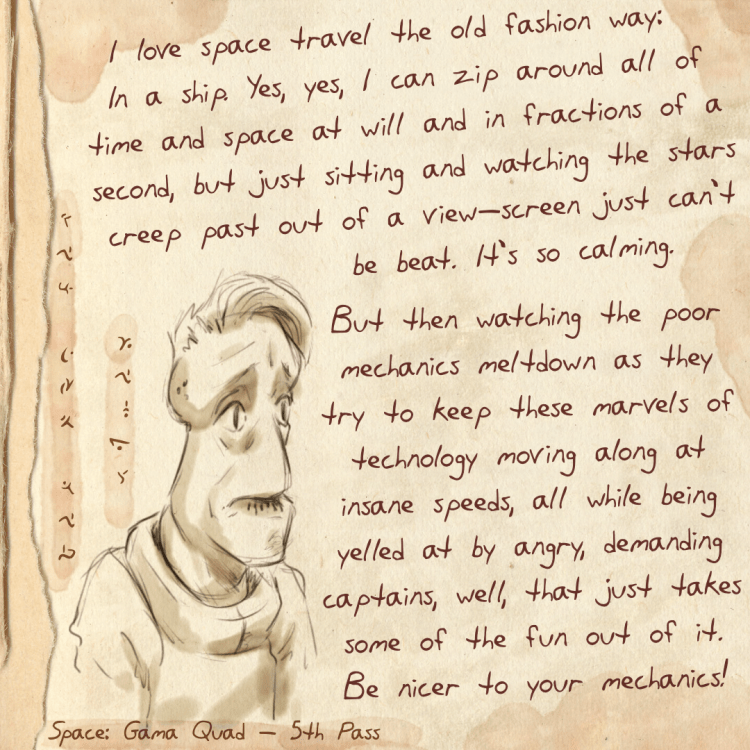 I love space travel the old fashion way:
In a ship. Yes, yes, I can zip around all of
time and space at will and in fractions of a
second, but just sitting and watching the stars
creep past out of a view-screen just can't
be beat. It's so calming.
But then watching the poor
mechanics meltdown as they
try to keep these marvels of
technology moving along at
insane speeds, all while being
yelled at by angry, demanding
captains, well, that just takes
some of the fun out of it.
Be nicer to your mechanics!
Space: Gama Quad - 5th Pass